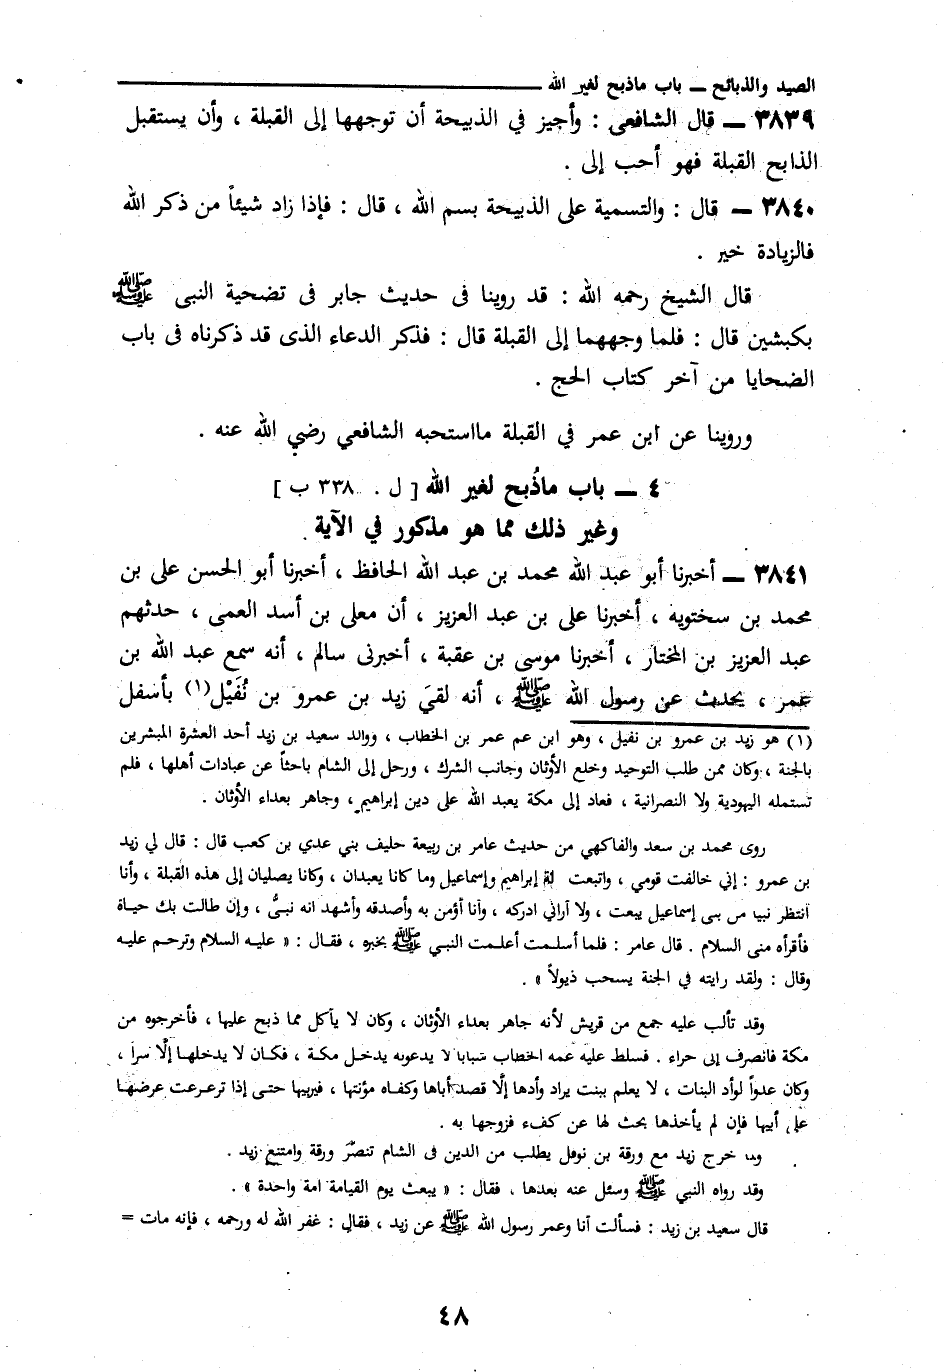 الصيد والذبائح ــ باب ماذبح لغير الله
٣٨٣٩ ــ قال الشافعى : وأجيز في الذبيحة أن توجهها إلى القبلة ، وأن يستقبل
الذابح القبلة فهو أحب إلى .
٣٨٤٠ ــ قال : والتسمية على الذبيحة بسم الله ، قال : فإذا زاد شيئاً من ذكر الله
فالزيادة خير .
قال الشيخ رحمه الله : قد روينا فى حديث جابر فى تضحية النبى ﷺ
بكبشين قال : فلما وجههما إلى القبلة قال : فذكر الدعاء الذى قد ذكرناه فى باب
الضحايا من آخر كتاب الحج .
وروينا عن ابن عمر في القبلة مااستحبه الشافعي رضي الله عنه .
٤ ــ باب ماذُبح لغير الله [ ل . ٣٣٨ ب ]
وغير ذلك مما هو مذكور في الآية
٣٨٤١ ــ أخبرنا أبو عبد الله محمد بن عبد الله الحافظ ، أخبرنا أبو الحسن على بن
محمد بن سختويه ، أخبرنا على بن عبد العزيز ، أن معلى بن أسد العمى ، حدثهم
عبد العزيز بن المختار ، أخبرنا موسى بن عقبة ، أخبرنى سالم ، أنه سمع عبد الله بن
عمر ، يحدث عن رسول الله ﷺ ، أنه لقيَ زيد بن عمرو بن نُفَيْل(١) بأسفل
(١) هو زيد بن عمرو بن نفيل ، وهو ابن عم عمر بن الخطاب ، ووالد سعيد بن زيد أحد العشرة المبشرين
بالجنة ، وكان ممن طلب التوحيد وخلع الأوثان وجانب الشرك ، ورحل إلى الشام باحثاً عن عبادات أهلها ، فلم
تستمله اليهودية ولا النصرانية ، فعاد إلى مكة يعبد الله على دين إبراهيم ، وجاهر بعداء الأوثان .
روى محمد بن سعد والفاكهي من حديث عامر بن ربيعة حليف بني عدي بن كعب قال : قال لي زيد
بن عمرو : إني خالفت قومي ، واتبعت ملة إبراهيم وإسماعيل وما كانا يعبدان ، وكانا يصليان إلى هذه القبلة ، وأنا
أنتظر نبيا من بنى إسماعيل يبعث ، ولا أراني ادركه ، وأنا أؤمن به وأصدقه وأشهد انه نبىُّ ، وإن طالت بك حياة
فأقرأه منى السلام . قال عامر : فلما أسلمت أعلمت النبي ﷺ بخبره ، فقال : « عليه السلام وترحم عليه
وقال : ولقد رايته في الجنة يسحب ذيولاً » .
وقد تألب عليه جمع من قريش لأنه جاهر بعداء الأوثان ، وكان لا يأكل مما ذبح عليها ، فأخرجوه من
مكة فانصرف إلى حراء . فسلط عليه عمه الخطاب شبابا لا يدعونه يدخل مكة ، فكان لا يدخلها إلّا سراً ،
وكان عدواً لوأد البنات ، لا يعلم ببنت يراد وأدها إلّا قصد أباها وكفاه مؤنتها ، فيربيها حتى إذا ترعرعت عرضها
على أبيها فإن لم يأخذها بحث لها عن كفء فزوجها به .
وقد خرج زيد مع ورقة بن نوفل يطلب من الدين فى الشام تنصَّر ورقة وامتنع زيد .
وقد رواه النبي ﷺ وسئل عنه بعدها ، فقال : « يبعث يوم القيامة امة واحدة » .
قال سعيد بن زيد : فسألت أنا وعمر رسول الله ﷺ عن زيد ، فقال : غفر الله له ورحمه ، فإنه مات =
٤٨